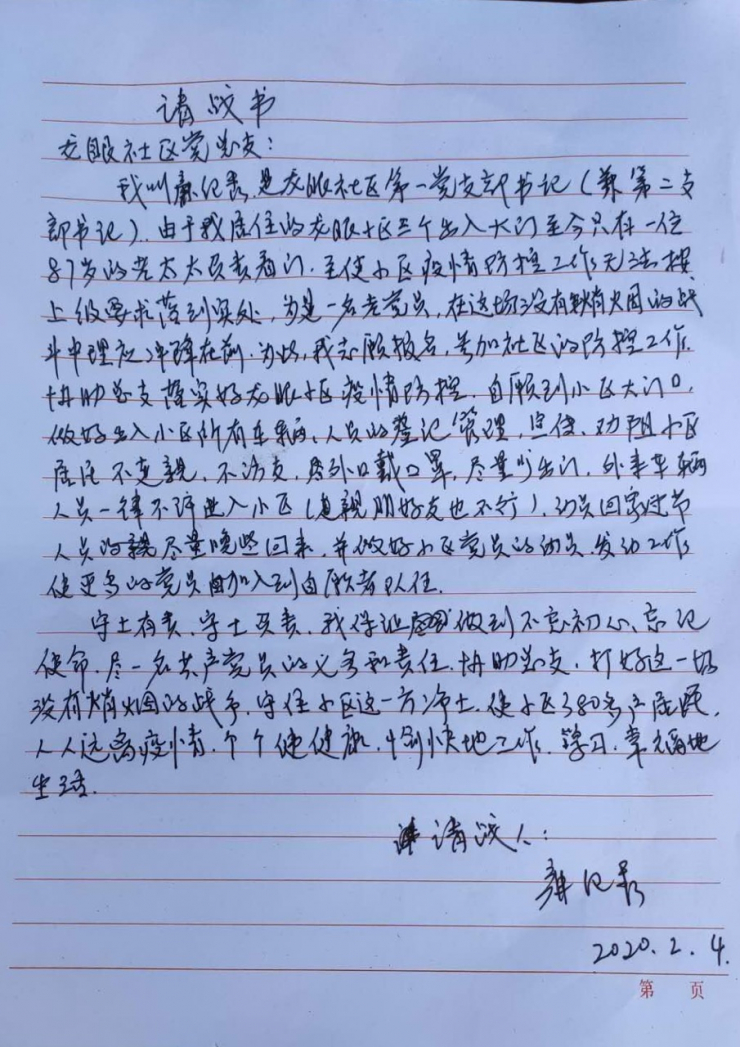 请战书
龙眼社区党总支：
我叫纪 是龙眼社区第一党支部书记（兼第二支
部书记）. 由于我居住的龙眼小区三个出入大门至今只有一位
87岁的老太太负责看门. 至使小区疫情防控工作无法按
上级要求落到实处, 为是一名老党员, 在这场没有硝烟的战
斗中理应冲锋在前. 为此, 我志愿报名, 参加社区的防控工作.
协助总支落实好龙眼小区疫情防控. 自愿到小区大门口,
做好出入小区所有车辆、人员的登记管理, 宣传、劝阻小区
居民不走亲, 不访友, 戴口罩, 尽量少出门, 外来车辆
人员一律不许进入小区（连亲朋好友也不行）, 动员回家过节
人员尽量晚些回来, 并做好小区党员的动员、发动工作
使更多的党员加入到自愿者队伍.
守土有责、守土负责, 我保证做到不忘初心、忘记
使命, 尽一名共产党员的义务和责任. 协助总支, 打好这一场
没有硝烟的战争, 守住小区这一方净土. 使小区380多户居民,
人人远离疫情, 个个健康, 愉快地工作、学习, 幸福地
生活.
请战人：
纪
2020.2.4.
第 页